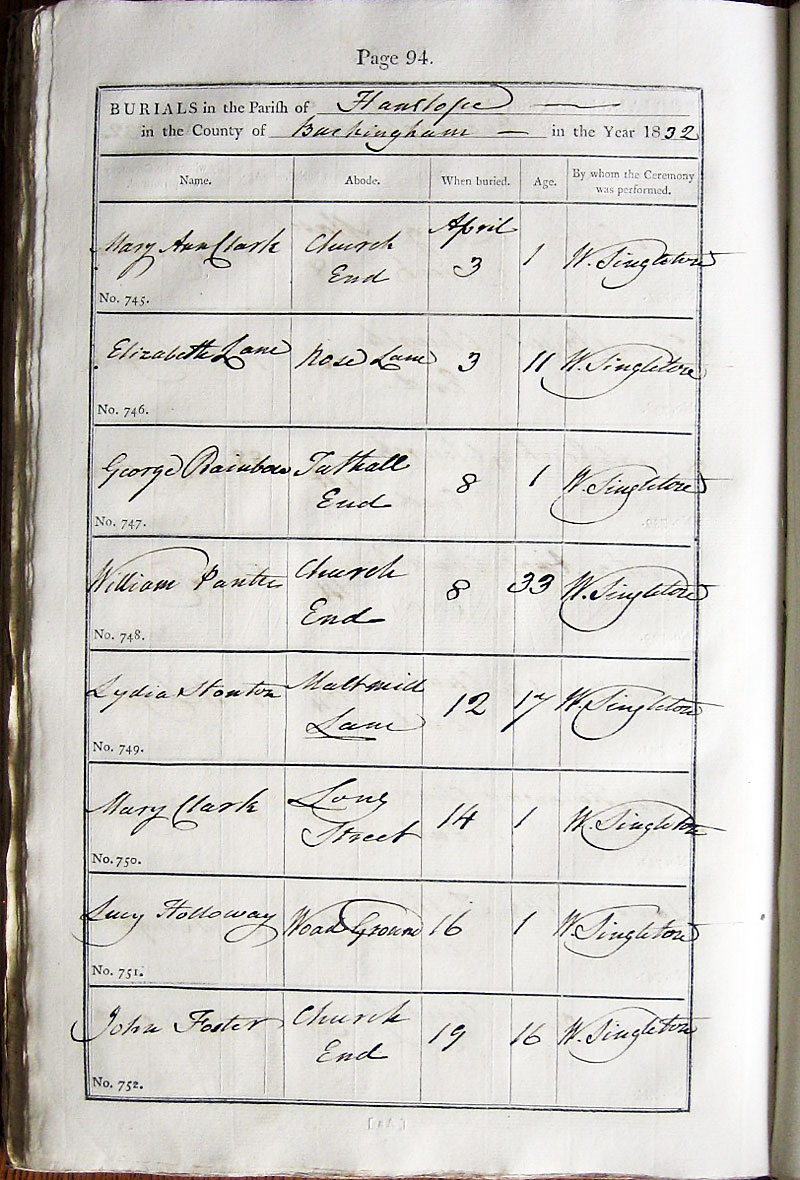 Page 94.
BURIALS in the Parish of Hanslope
in the County of Buckingham in the Year 1832
Name. Abode. When buried. Age. By whom the Ceremony was performed.
April
Mary Ann Clark Church End 3 1 W. Singleton
No. 745.
Elizabeth Lane Rose Lane 3 11 W. Singleton
No. 746.
George Rainbow Tathall End 8 1 W. Singleton
No. 747.
William Panter Church End 8 33 W. Singleton
No. 748.
Lydia Stanton Maltmill Lane 12 17 W. Singleton
No. 749.
Mary Clark Long Street 14 1 W. Singleton
No. 750.
Lucy Holloway Woad Ground 16 1 W. Singleton
No. 751.
John Foster Church End 19 16 W. Singleton
No. 752.